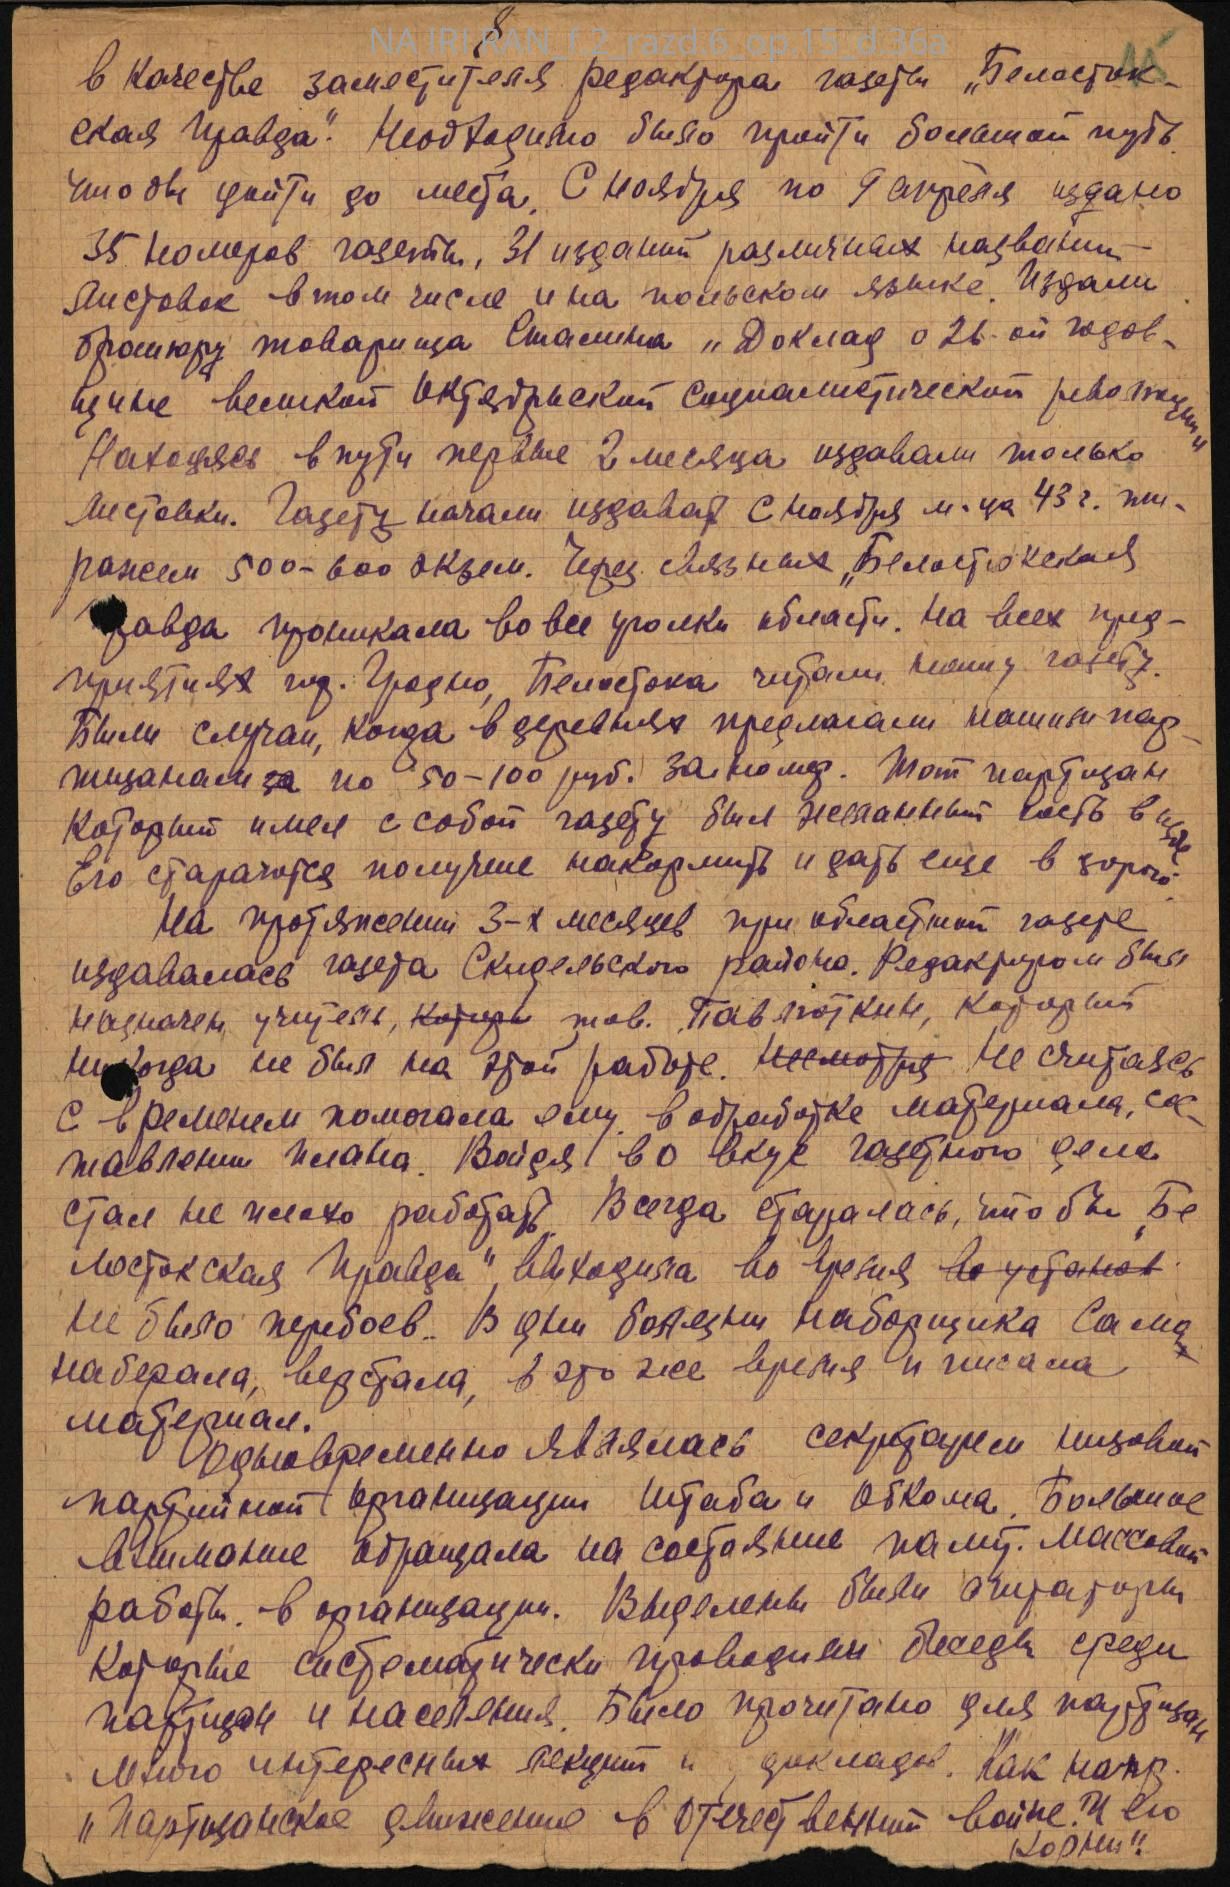 8
NA IRI RAN_f.2_razd.6_op.15_d.36a
15
в качестве заместителя редактора газеты „Белосток-
ская Правда". Необходимо было пройти большой путь
чтобы дойти до места. С ноября по 9 апреля издано
35 номеров газеты, 31 изданий различных названий
листовок в том числе и на польском языке. Издали
брошюру товарища Сталина „Доклад о 26-ой годов-
щине великой Октябрьской социалистической революции
Находясь в пути первые 2 месяца издавали только
листовки. Газету начали издавать с ноября м-ца 43 г. ти-
ражем 500-600 экзем. Через связных „Белостокская
Правда проникала во все уголки области. На всех пред-
приятиях гор. Гродно, Белостока читали нашу газету.
Были случаи, когда в деревнях предлагали нашим пар-
тизанам за по 50-100 руб. за номер. Тот партизан
который имел с собой газету был желанный гость в избе
Его стараются получше накормить и дать еще в дорогу.
На протяжении 3-х месяцев при областной газете
издавалась газета Скидельского района. Редактором был
назначен учитель, которы тов. Павлоткин, который
никогда не был на этой работе. Несмотря Не считаясь
с временем помогала ему в обработке материала, сос-
тавлении плана. Войдя во вкус газетного дела
стал не плохо работать. Всегда старалась, чтобы „Бе
лостокская Правда" выходила во время во установ
не было перебоев. В дни болезни наборщика сама
наберала, верстала, в это же время и писала
материал.
Одновременно являлась секретарем низовой
партийной организации штаба и Обкома. Большое
внимание обращала на состояние палит. массовой
работы в организации. Выделены были агитаторы
которые систематически проводили беседы среди
партизан и населения. Было прочитано для партизан
много интересных лекций и докладов. Как напр.
„Партизанское движение в отечественной войне и его
корни".